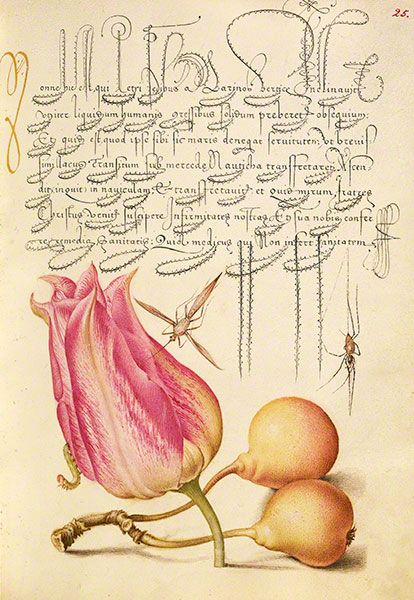 25.
onne hic est qui Petri pedibus a Latinos vergice inclinavit
ut liquidum humanis gressibus solidum preberet obsequium:
Et quid est quod ipse sibi sic maris denegat servitutem: ut brevis
simi lacus Transitum sub mercede Nauticha transfretaret: Ascen
dit inquit in naviculam: Et transfretavit: et Quid mirum fratres
Christus venit suscipere Infirmitates nostras: Et sua nobis confer
re remedia Sanitatis: Quia medicus qui Non infert sanitatem